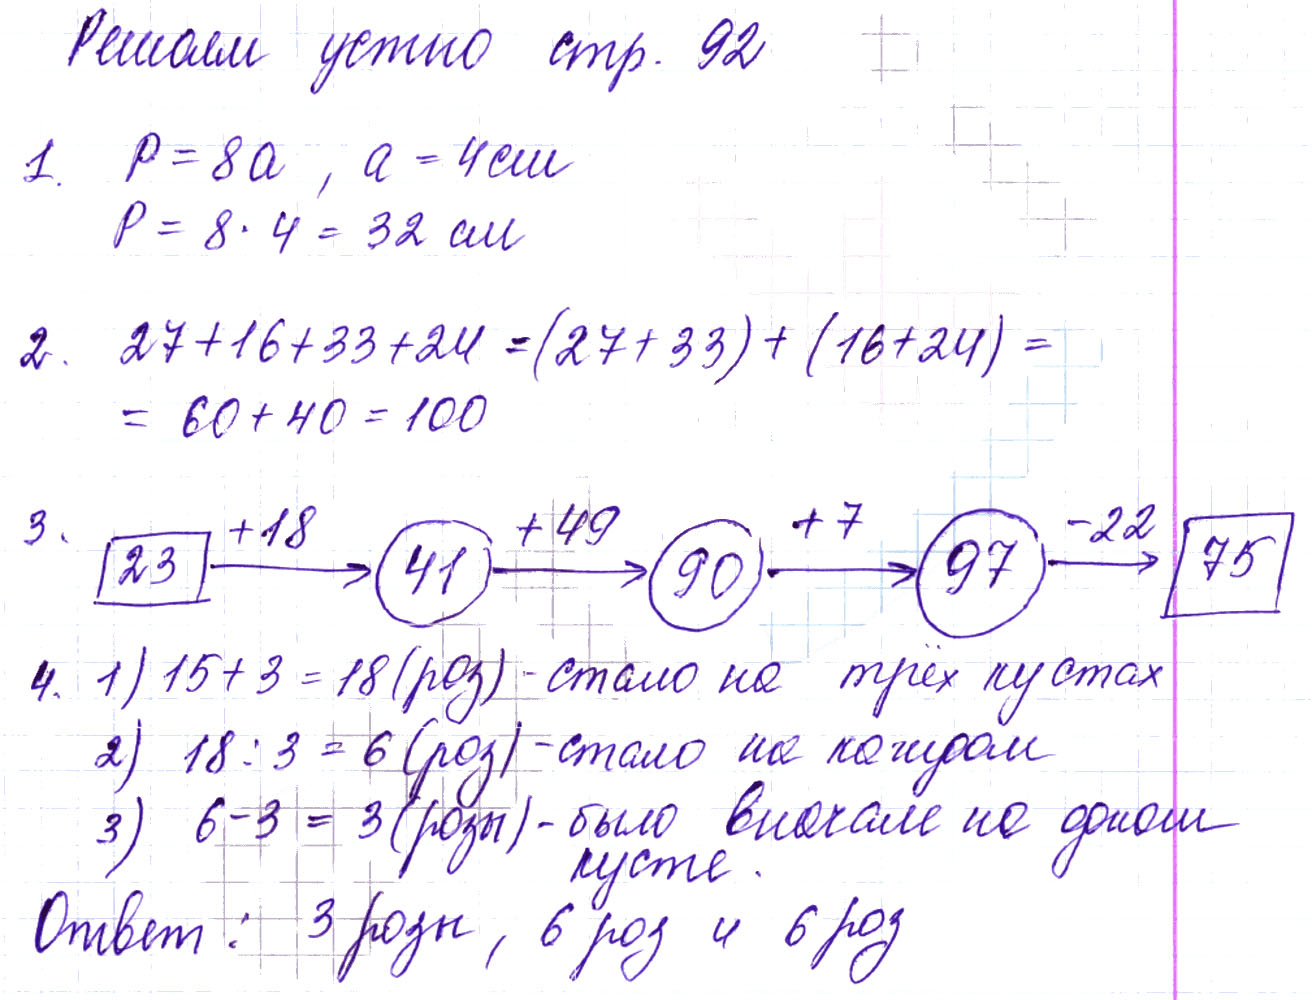 Решаем устно стр. 92
1. P = 8a , a = 4 см
P = 8 · 4 = 32 см
2. 27+16+33+24 = (27+33) + (16+24) =
= 60+40 = 100
3. 23 +18 41 +49 90 +7 97 -22 75
4. 1) 15+3 = 18 (роз) - стало на трёх кустах
2) 18 : 3 = 6 (роз) - стало на каждом
3) 6-3 = 3 (розы) - было вначале на одном
кусте.
Ответ: 3 розы, 6 роз и 6 роз